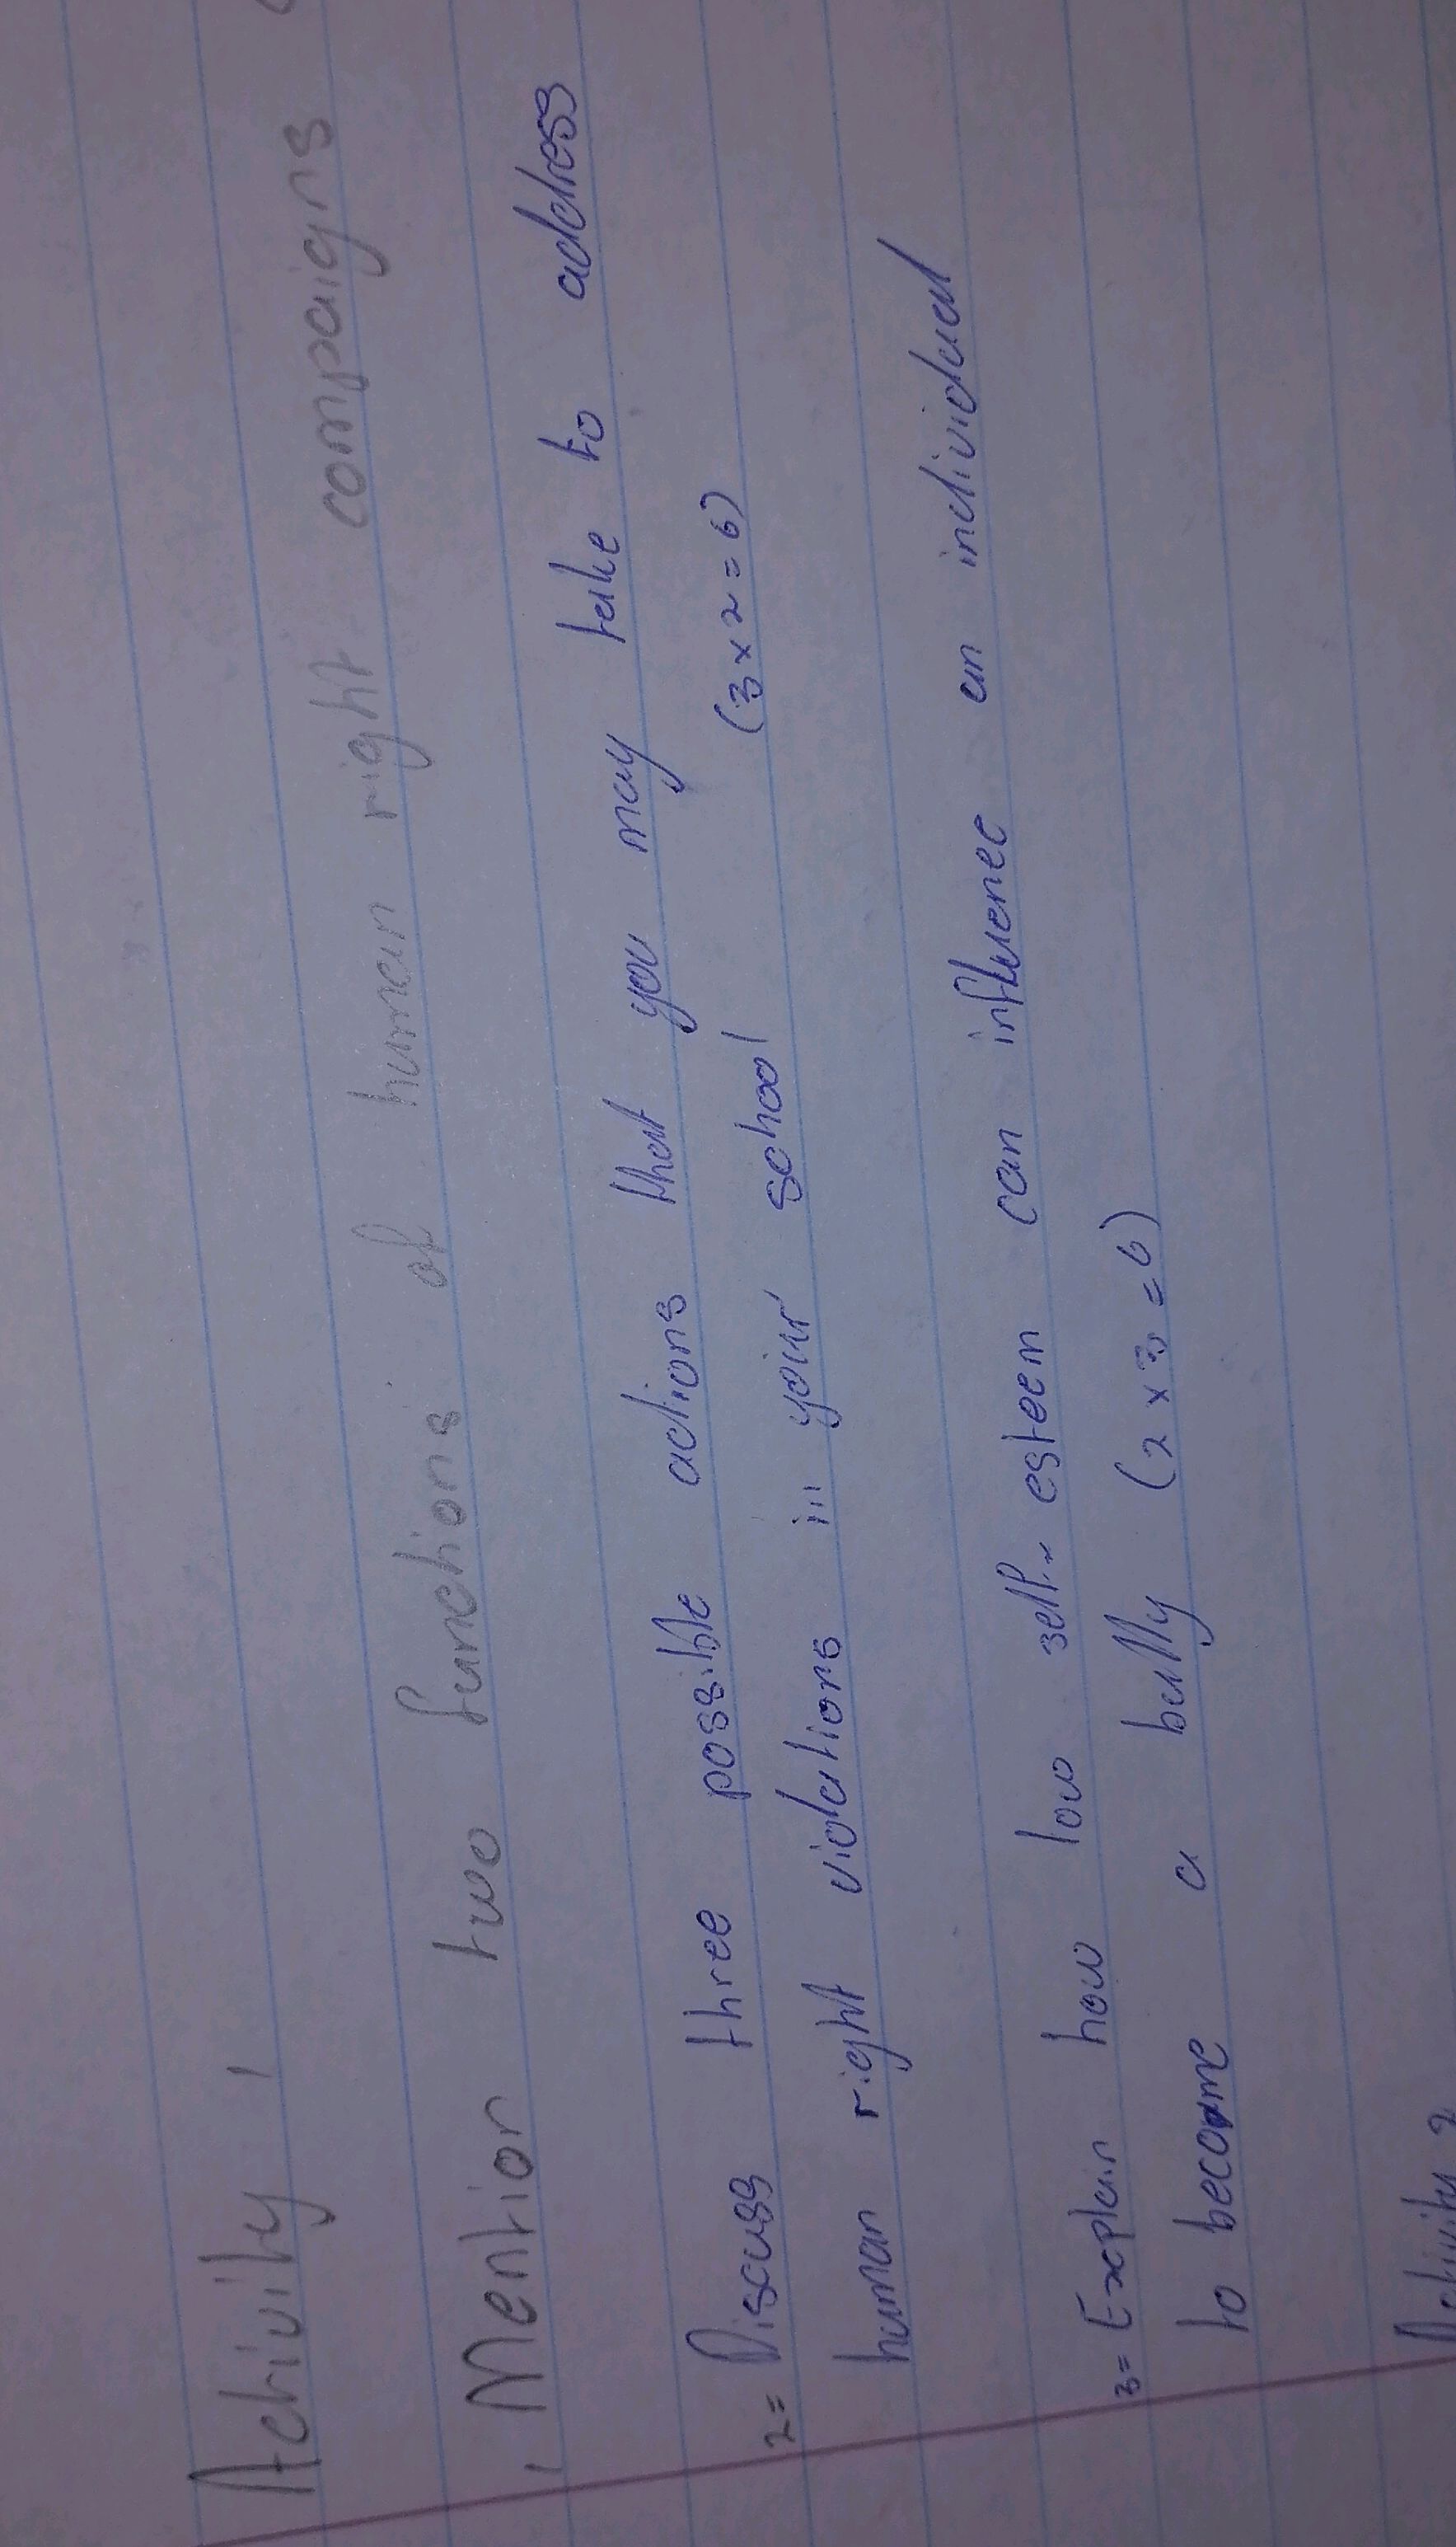 Activity 1
1 Mention two functions of human right compaigns
2= Discuss three possible actions that you may take to address
human right violations in your school (3 x 2 = 6)
3= Explain how low self- esteem can influence an individual
to become a bully (2 x 3 = 6)
Activity 2